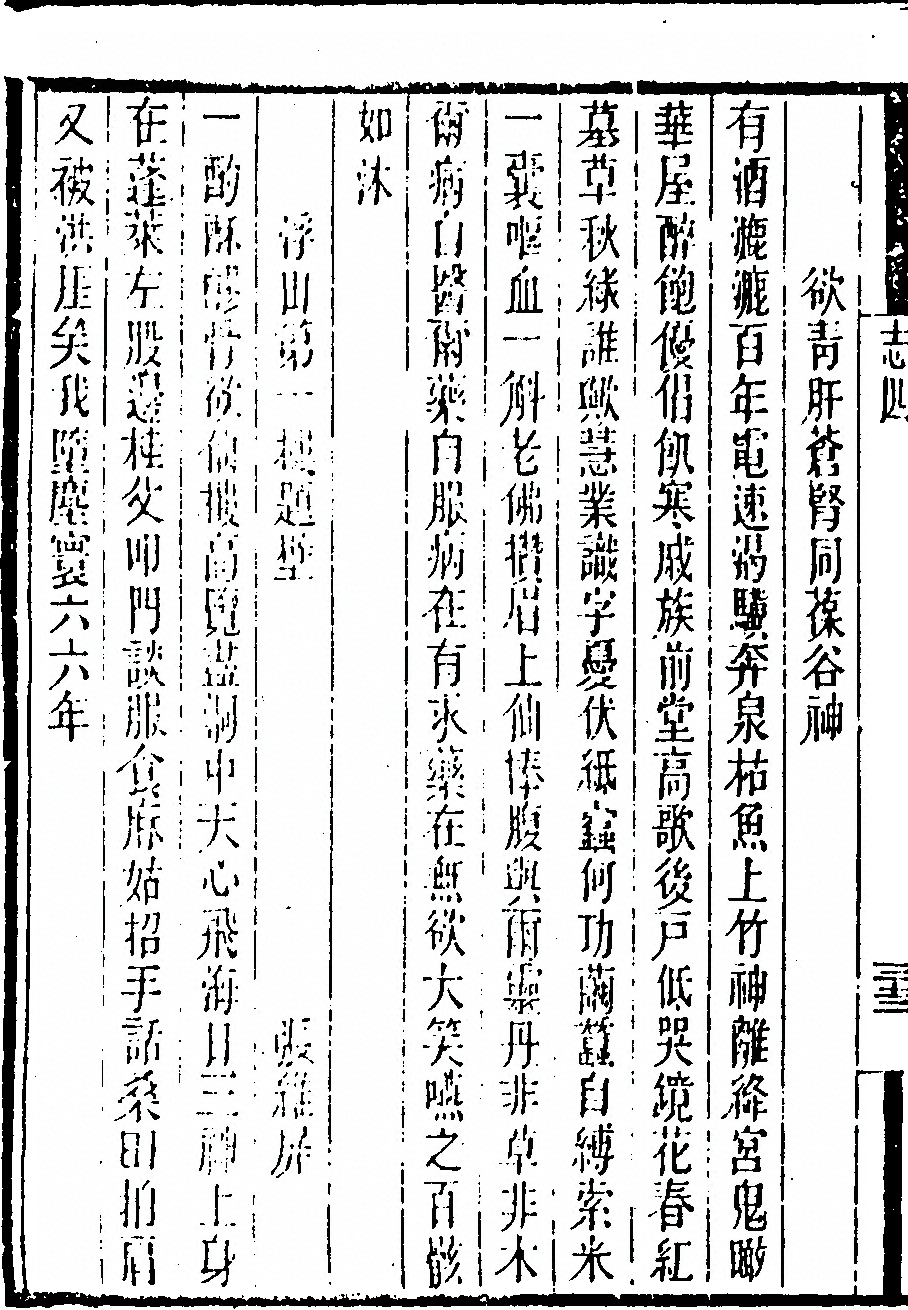 志四
欲青肝蒼腎同葆谷神
有酒漉漉百年電速渴驥奔泉枯魚上竹神離絳宮鬼瞰
華屋醉飽優倡飢寒戚族前堂高歌後戸低哭鏡花春紅
墓草秋綠誰歟慧業識字憂伏紙蟲何功繭蠶自縛索米
一囊嘔血一斛老佛攢眉上仙捧腹與爾靈丹非草非木
爾病自醫爾藥自服病在有求藥在無欲大笑嚥之百骸
如沐
浮山第一樓題壁 張維屏
一酌酥醪骨欲仙披高覽盡洞中天心飛海日三神上身
在蓬萊左股邊桂父叩門談服食麻姑招手話桑田拍肩
又被洪厓矣我墮塵寰六六年